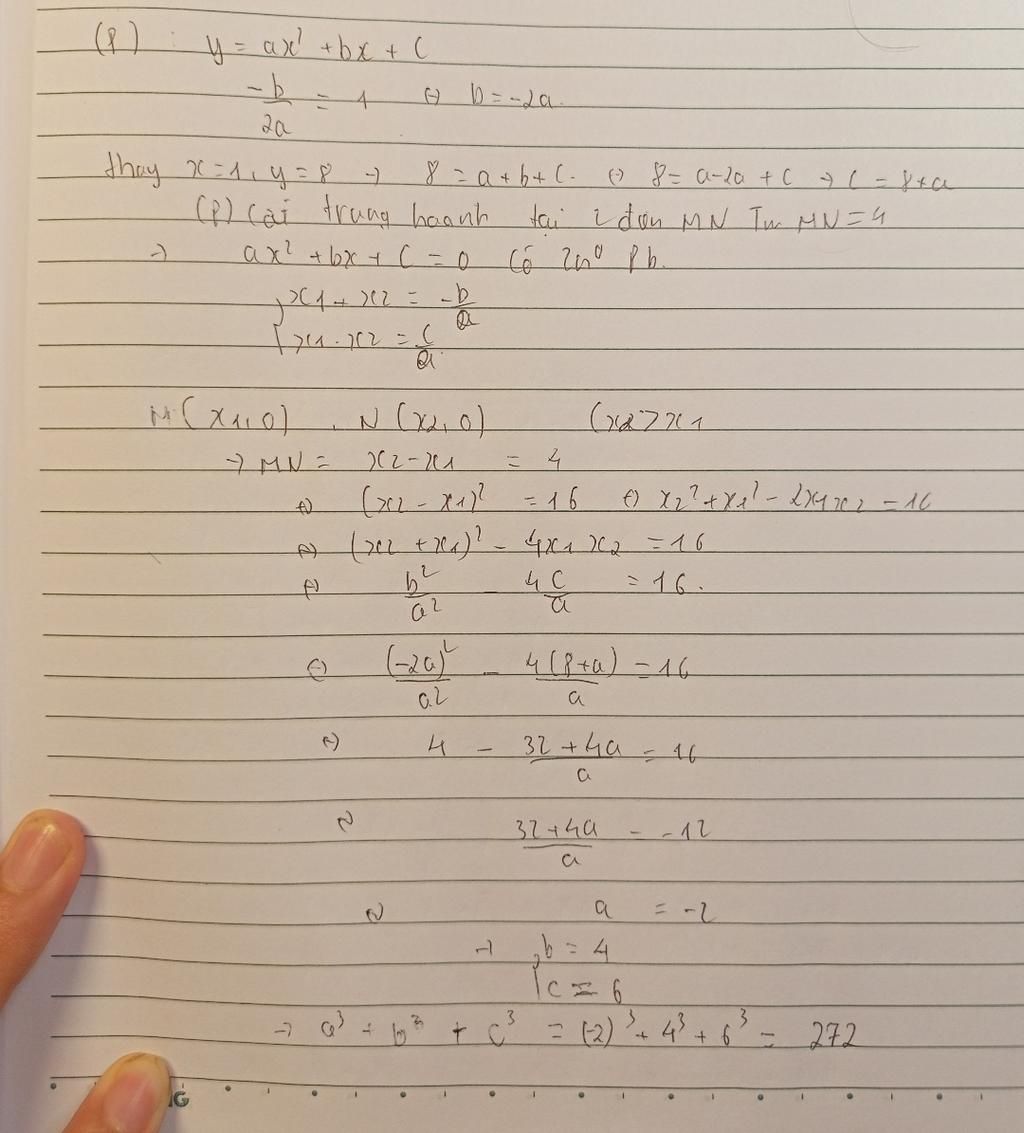 (P) : y = ax² + bx + c
-b/2a = 1 ⇔ b = -2a.
thay x = 1, y = 8 → 8 = a + b + c. ⇔ 8 = a - 2a + c → c = 8 + a
(P) cắt trung hoanh tại 2 MN MN = 4
→ ax² + bx + c = 0 có 2no pb.
{ x1 + x2 = -b/a
x1 . x2 = c/a
M(x1, 0) , N(x2, 0) (x2 > x1
→ MN = x2 - x1 = 4
⇔ (x2 - x1)² = 16 ⇔ x2² + x1² - 2x1x2 = 16
⇔ (x2 + x1)² - 4x1x2 = 16
⇔ b²/a² - 4c/a = 16.
⇔ (-2a)²/a² - 4(8+a)/a = 16
⇔ 4 - 32+4a/a = 16
⇔ 32+4a/a = -12
⇔ a = -2
→ { b = 4
c = 6
→ a³ + b³ + c³ = (-2)³ + 4³ + 6³ = 272